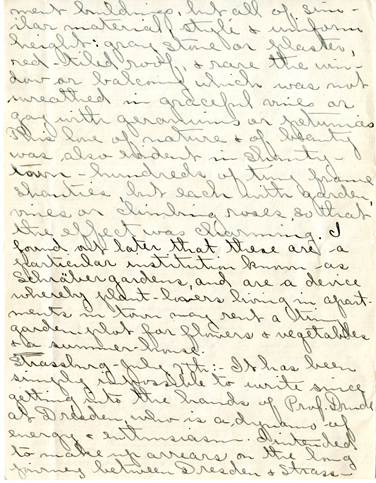 ment buildings, but all of sim-
ilar material, style & uniform
height: gray stone or plaster,
red tiled roof, & rare the win-
dow or balcony which was not
wreathed in graceful vines or
gay with geraniums or petunias.
This love of nature & of beauty
was also evident in shanty-
town - hundreds of tiny frame
shanties, but each with garden,
vines or climbing roses, so that
the effect was charming. I
found out later that these are a
particular institution known as
Schräbergardens, and are a device
whereby plant-lovers living in apart-
ments in town may rent a tiny
garden plot for flowers & vegetables
& a summer house.
Strassburg, July 7th:- It has been
simply impossible to write since
getting into the hands of Prof. Drude
at Dresden who is a dynamo of
energy & enthusiasm. I intended
to make up arrears on the long
journey between Dresden & Strass-